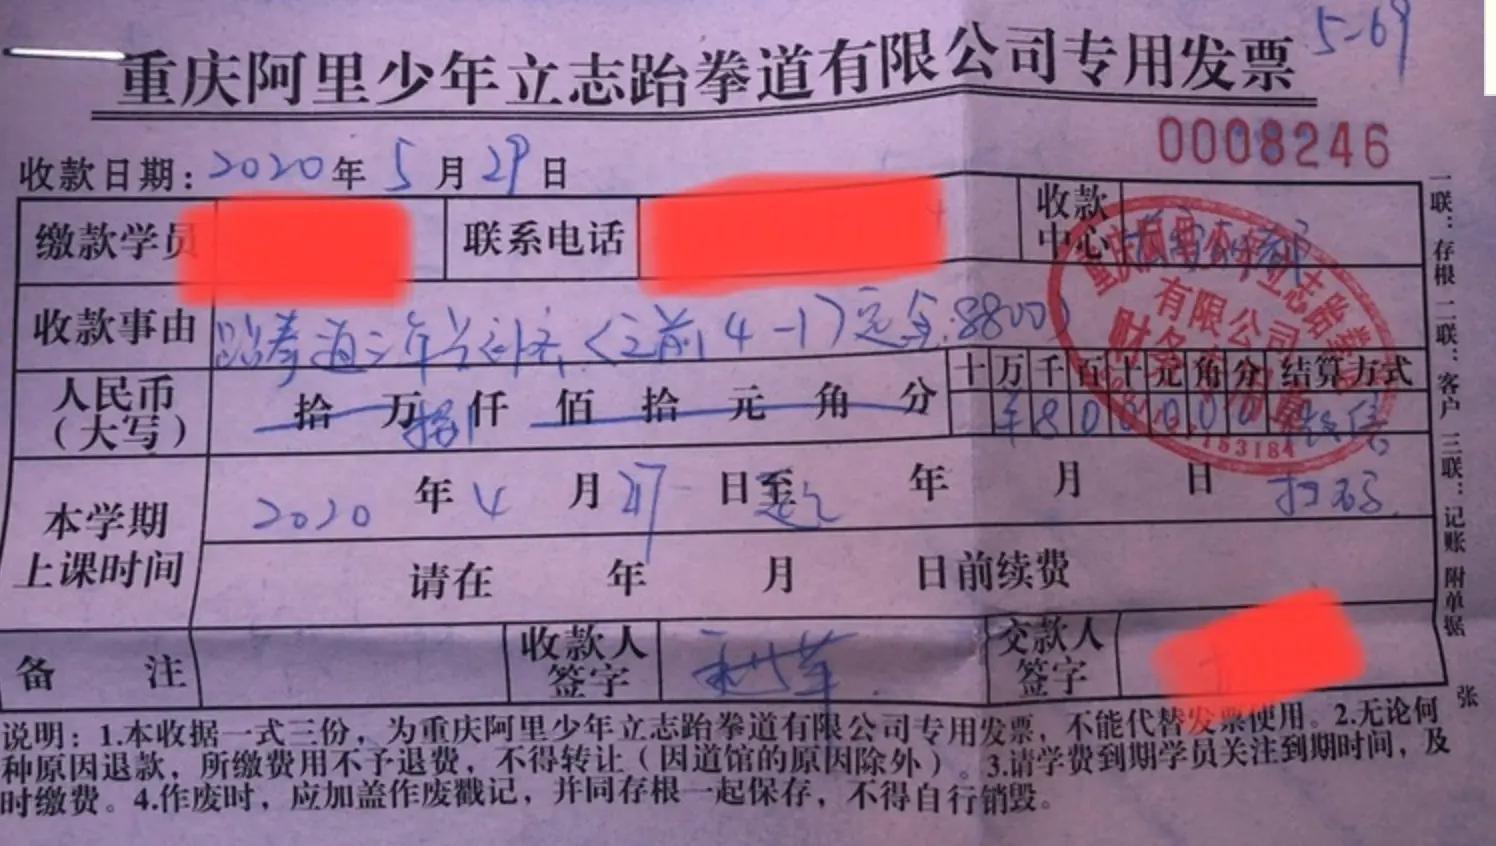 5-69
重庆阿里少年立志跆拳道有限公司专用发票
0008246
收款日期：2020年5月29日
缴款学员 联系电话 收款中心
收款事由 跆拳道三年 (之前4-1)定金:8800)
人民币（大写） 拾 万 捌 仟 佰 拾 元 角 分 十 万 千 百 十 元 角 分 结算方式
¥ 8 0 0 0 0 0 微信
本学期上课时间 2020年4月 日至 年 月 日 扫码
请在 年 月 日前续费
备 注 收款人签字 交款人签字
说明：1.本收据一式三份，为重庆阿里少年立志跆拳道有限公司专用发票，不能代替发票使用。2.无论何
种原因退款，所缴费用不予退费，不得转让（因道馆的原因除外）。3.请学费到期学员关注到期时间，及
时缴费。4.作废时，应加盖作废戳记，并同存根一起保存，不得自行销毁。
一联：存根 二联：客户 三联：记账 附单据 张
重庆阿里少年立志跆拳道
有限公司
财务专用章